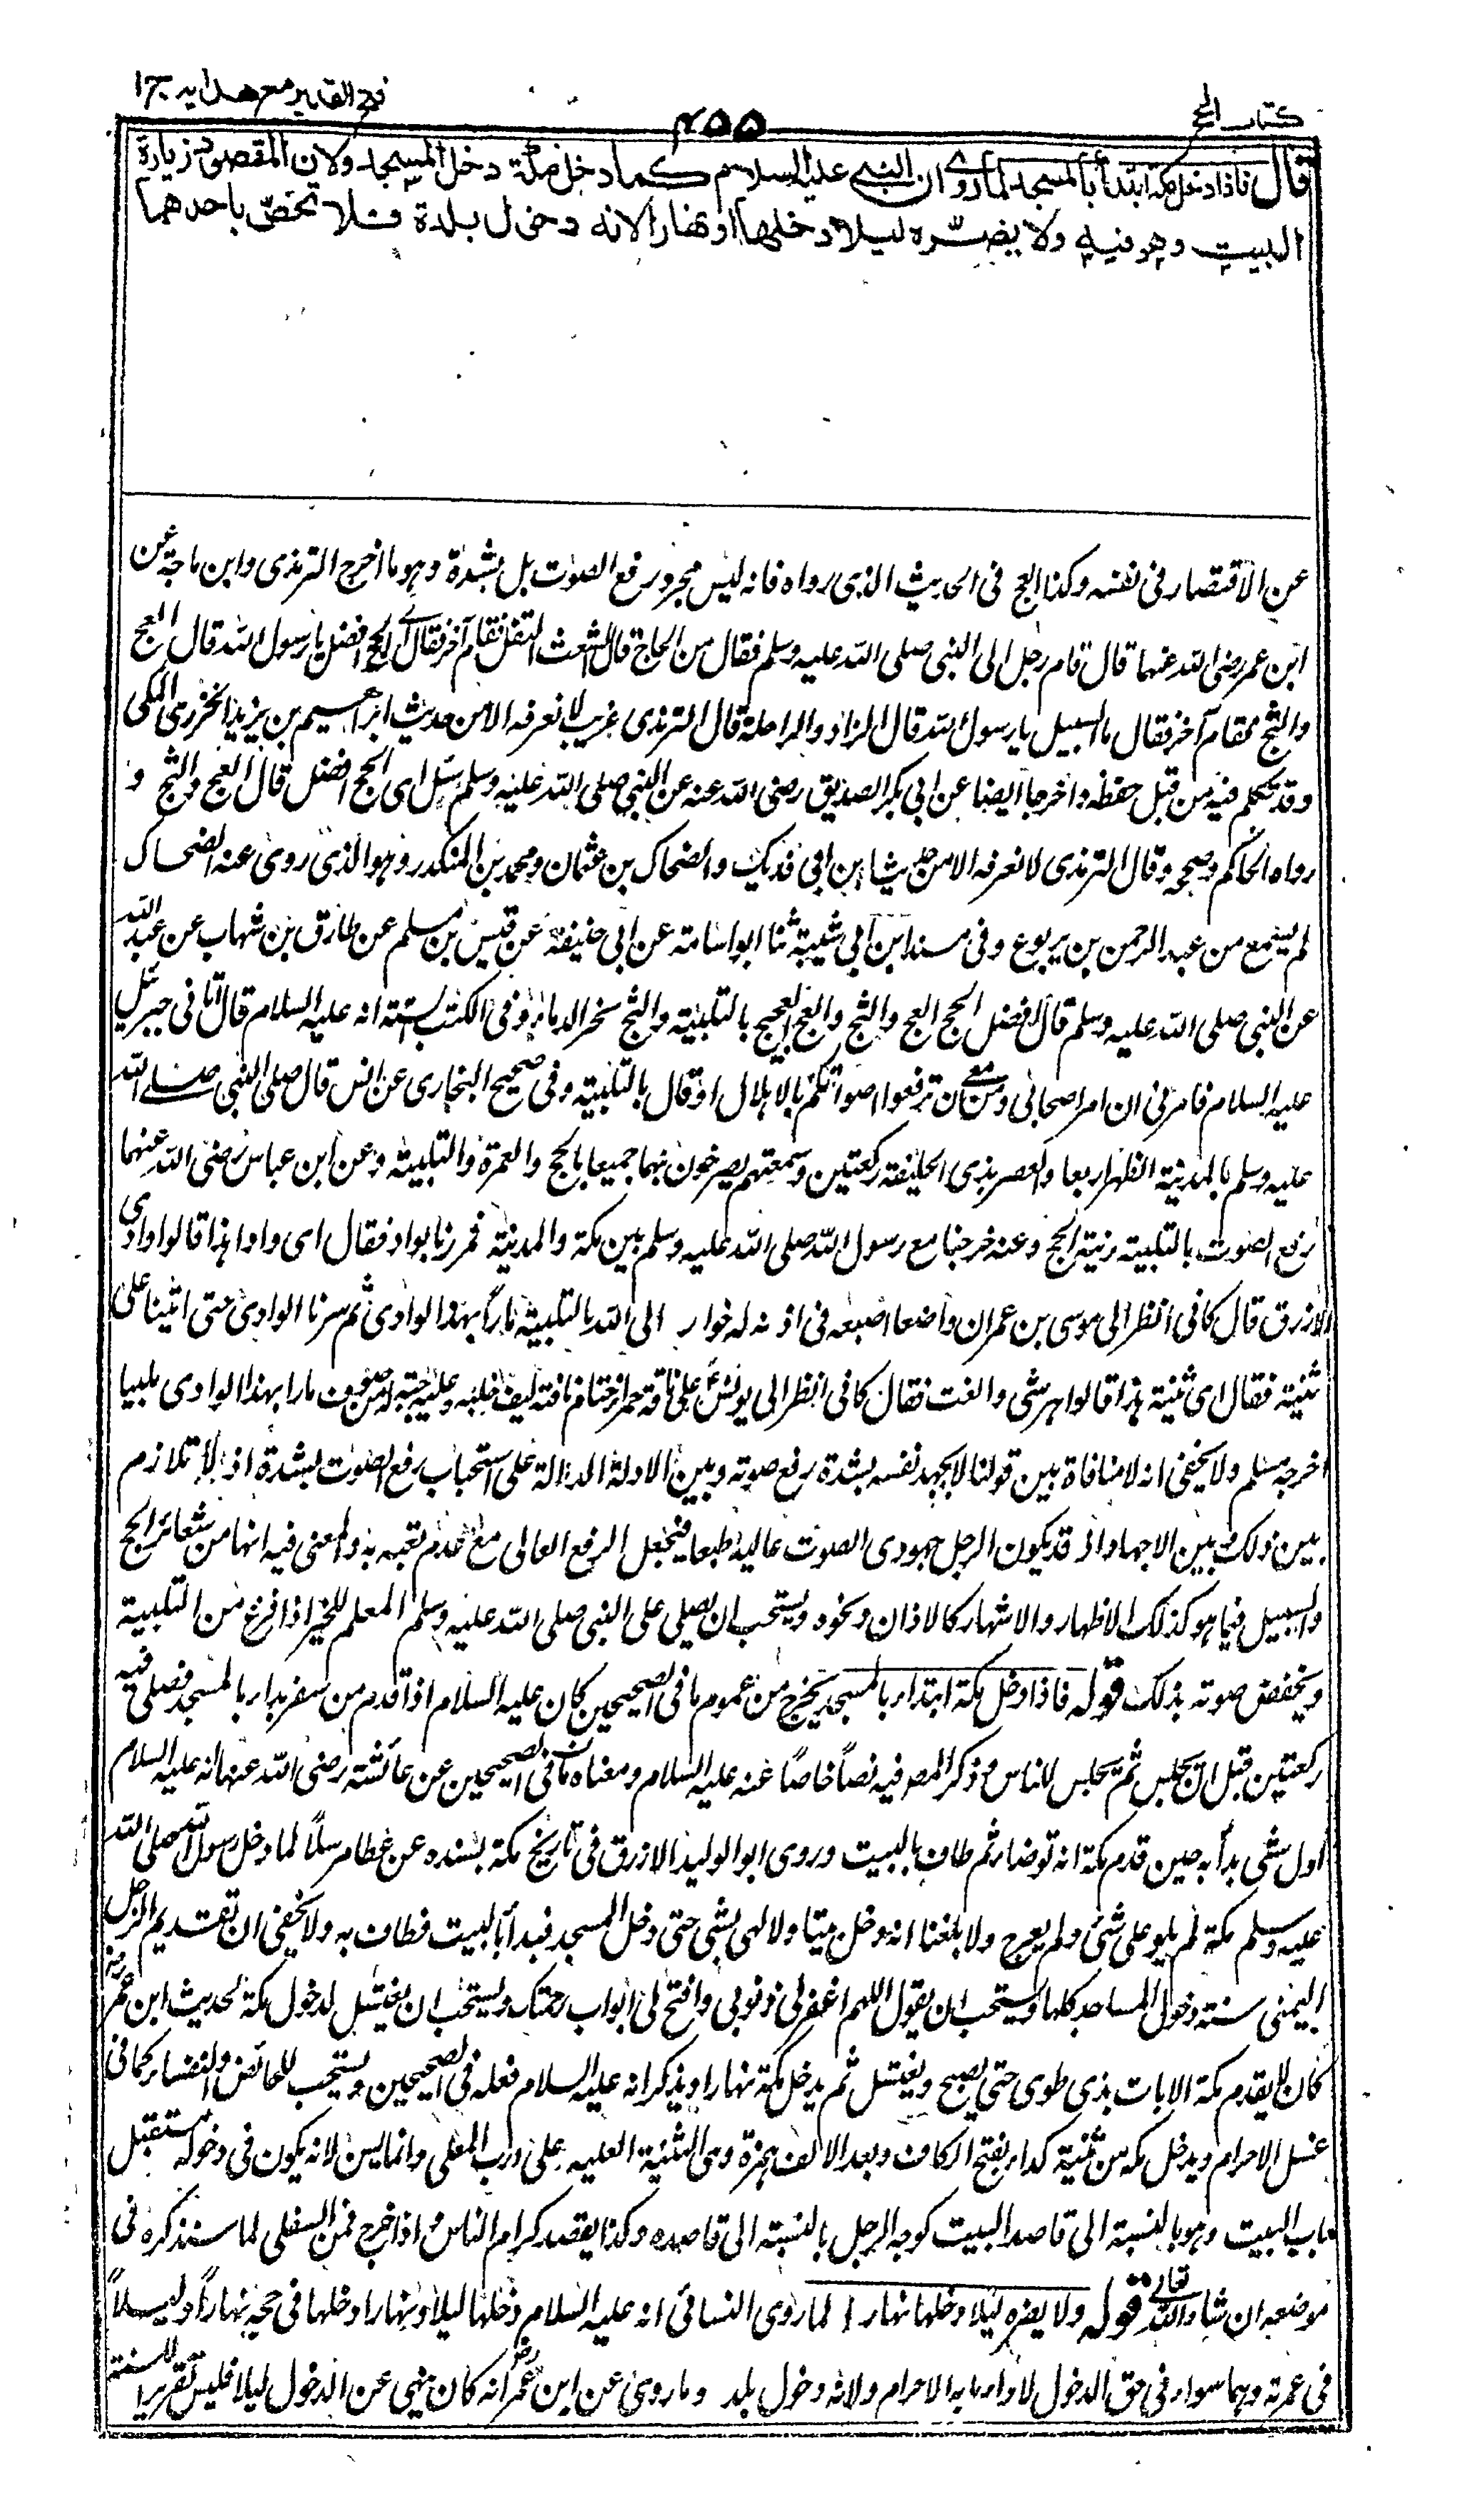 كتاب الحج
٤٥٥
فتح القدير مع هدايه ج ١
قال فاذا دخل مكة ابتدأ بالمسجد لما روي ان النبي عليه السلام كما دخل مكة دخل المسجد ولان المقصود زيارة
البيت وهو فيه ولا يضره ليلا دخلها او نهارا لانه دخول بلدة فلا تخص باحدهما
عن الاقتصار فى نفسه وكذا العج فى الحديث الذى رواه فانه ليس مجرد رفع الصوت بل بشدة وهو ما اخرج الترمذى وابن ماجة عن
ابن عمر رضى الله عنهما قال قام رجل الى النبى صلى الله عليه وسلم فقال من الحاج قال الشعث التفل فقام آخر فقال اى الحج افضل يا رسول الله قال العج
والثج فقام آخر فقال ما السبيل يا رسول الله قال الزاد والراحلة قال الترمذى غريب لا نعرفه الا من حديث ابراهيم بن يزيد الخوزى المكى
وقد تكلم فيه من قبل حفظه واخرجا ايضا عن ابى بكر الصديق رضى الله عنه عن النبى صلى الله عليه وسلم سئل اى الحج افضل قال العج والثج و
رواه الحاكم وصححه وقال الترمذى لا نعرفه الا من حديث ابن ابى فديك والضحاك بن عثمان ومحمد بن المنكدر وهو الذى روى عنه الضحاك
لم يسمع من عبد الرحمن بن يربوع وفى مسند ابن ابى شيبة ثنا ابو اسامة عن ابى حنيفة عن قيس بن مسلم عن طارق بن شهاب عن عبد الله
عن النبى صلى الله عليه وسلم قال افضل الحج العج والثج والعج العجيج بالتلبية والثج نحر الدماء وفى الكتب الستة انه عليه السلام قال اتانى جبرئيل
عليه السلام فامرنى ان امر اصحابى ومن معى ان ترفعوا اصواتكم بالاهلال او قال بالتلبية وفى صحيح البخارى عن انس قال صلى النبى صلى الله
عليه وسلم بالمدينة الظهر اربعا والعصر بذى الحليفة ركعتين وسمعتهم يصرخون بهما جميعا بالحج والعمرة والتلبية وعن ابن عباس رضى الله عنهما
رفع الصوت بالتلبية زينة الحج وعنه خرجنا مع رسول الله صلى الله عليه وسلم بين مكة والمدينة فمررنا بواد فقال اى واد هذا قالوا وادى
الازرق قال كانى انظر الى موسى بن عمران واضعا اصبعه فى اذنه له خوار الى الله بالتلبية مارًّا بهذا الوادى ثم سرنا الوادى حتى اتينا على
ثنية فقال اى ثنية هذا قالوا هرشى والفت فقال كانى انظر الى يونس على ناقة حمراء خطام ناقته ليف خلبة وعليه جبة من صوف مارا بهذا الوادى ملبيا
اخرجه مسلم ولا يخفى انه لا منافاة بين قولنا لا يجهد نفسه بشدة رفع صوته وبين الادلة الدالة على استحباب رفع الصوت بشدة اذ لا تلازم
بين ذلك وبين الاجهاد اذ قد يكون الرجل جهورى الصوت عاليه طبعا فيحصل الرفع العالى مع عدم تعبه به والمعنى فيه انها من شعائر الحج
والسبيل فيما هو كذلك الاظهار والاشهار كالاذان ونحوه ويستحب ان يصلى على النبى صلى الله عليه وسلم المعلم للخير اذا فرغ من التلبية
ويخفض صوته بذلك قوله فاذا دخل مكة ابتداء بالمسجد يخرج من عموم ما فى الصحيحين كان عليه السلام اذا قدم من سفر بداء بالمسجد فصلى فيه
ركعتين قبل ان يجلس ثم يجلس للناس وذكر المص فيه نصاً خاصاً عنه عليه السلام ومعناه ما فى الصحيحين عن عائشة رضى الله عنها انه عليه السلام
اول شئ بدأ به حين قدم مكة انه توضا ثم طاف بالبيت وروى ابو الوليد الازرقى فى تاريخ مكة بسنده عن عطا مرسلاً لما دخل رسول الله صلى الله
عليه وسلم مكة لم يلو على شئ ولم يعرج ولا بلغنا انه دخل بيتا ولا لهى بشئ حتى دخل المسجد فبدأ بالبيت فطاف به ولا يخفى ان تقديم الرجل
اليمنى سنة دخول المساجد كلها ويستحب ان يقول اللهم اغفر لى ذنوبى وافتح لى ابواب رحمتك ويستحب ان يغتسل لدخول مكة لحديث ابن عمر رض
كان لا يقدم مكة الا بات بذى طوى حتى يصبح ويغتسل ثم يدخل مكة نهارا ويذكر انه عليه السلام فعله فى الصحيحين ويستحب للحائض والنفساء كما فى
غسل الاحرام ويدخل مكة من ثنية كداء بفتح الكاف وبعد الالف همزة وهى الثنية العليه على درب المعلى وانما يسن لانه يكون فى دخوله مستقبل
باب البيت وهو بالنسبة الى قاصد البيت كوجه الرجل بالنسبة الى قاصده وكذا يقصد كرام الناس واذا خرج فمن السفلى لما سنذكره فى
موضعه ان شاء الله تعالى قوله ولا يضره ليلا دخلها نهارا لما روى النسائى انه عليه السلام دخلها ليلا ونهارا دخلها فى حجه نهاراً وليلاً
فى عمرته وهما سواء فى حق الدخول لاداء ما به الاحرام ولانه دخول بلد وما روى عن ابن عمر رض انه كان ينهى عن الدخول ليلا فليس تقريرا للسنة